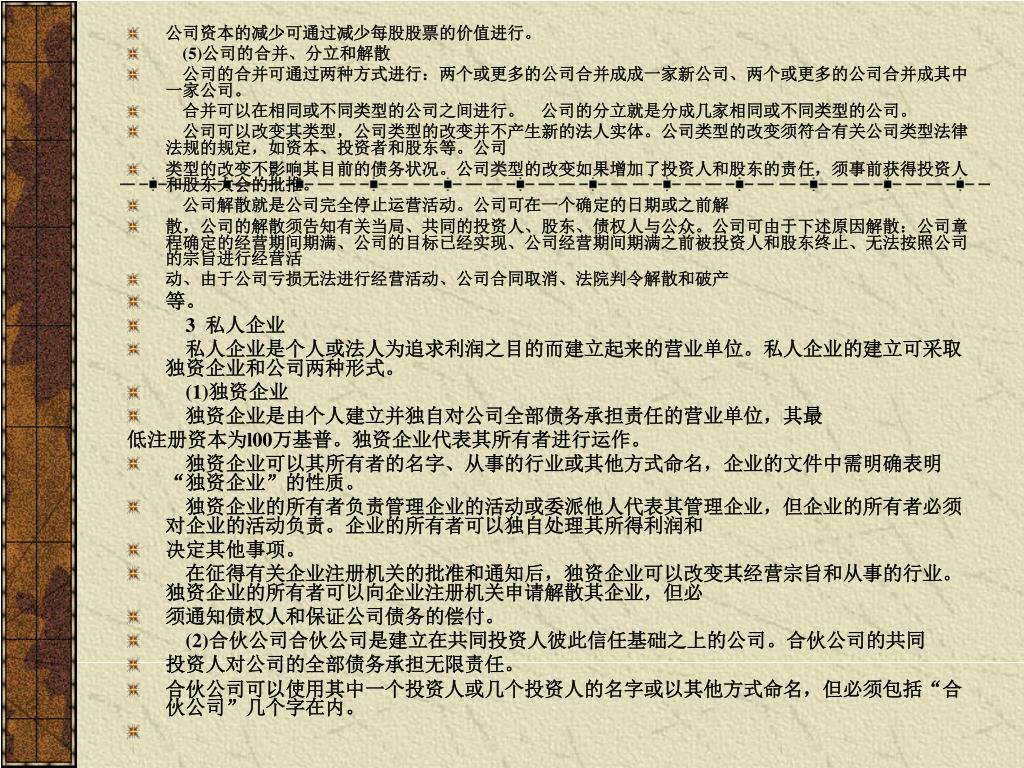 公司资本的减少可通过减少每股股票的价值进行。
(5)公司的合并、分立和解散
公司的合并可通过两种方式进行：两个或更多的公司合并成成一家新公司、两个或更多的公司合并成其中
一家公司。
合并可以在相同或不同类型的公司之间进行。 公司的分立就是分成几家相同或不同类型的公司。
公司可以改变其类型，公司类型的改变并不产生新的法人实体。公司类型的改变须符合有关公司类型法律
法规的规定，如资本、投资者和股东等。公司
类型的改变不影响其目前的债务状况。公司类型的改变如果增加了投资人和股东的责任，须事前获得投资人
和股东大会的批推。
公司解散就是公司完全停止运营活动。公司可在一个确定的日期或之前解
散，公司的解散须告知有关当局、共同的投资人、股东、债权人与公众。公司可由于下述原因解散：公司章
程确定的经营期间期满、公司的目标已经实现、公司经营期间期满之前被投资人和股东终止、无法按照公司
的宗旨进行经营活
动、由于公司亏损无法进行经营活动、公司合同取消、法院判令解散和破产
等。
3 私人企业
私人企业是个人或法人为追求利润之目的而建立起来的营业单位。私人企业的建立可采取
独资企业和公司两种形式。
(1)独资企业
独资企业是由个人建立并独自对公司全部债务承担责任的营业单位，其最
低注册资本为l00万基普。独资企业代表其所有者进行运作。
独资企业可以其所有者的名字、从事的行业或其他方式命名，企业的文件中需明确表明
“独资企业”的性质。
独资企业的所有者负责管理企业的活动或委派他人代表其管理企业，但企业的所有者必须
对企业的活动负责。企业的所有者可以独自处理其所得利润和
决定其他事项。
在征得有关企业注册机关的批准和通知后，独资企业可以改变其经营宗旨和从事的行业。
独资企业的所有者可以向企业注册机关申请解散其企业，但必
须通知债权人和保证公司债务的偿付。
(2)合伙公司合伙公司是建立在共同投资人彼此信任基础之上的公司。合伙公司的共同
投资人对公司的全部债务承担无限责任。
合伙公司可以使用其中一个投资人或几个投资人的名字或以其他方式命名，但必须包括“合
伙公司”几个字在内。